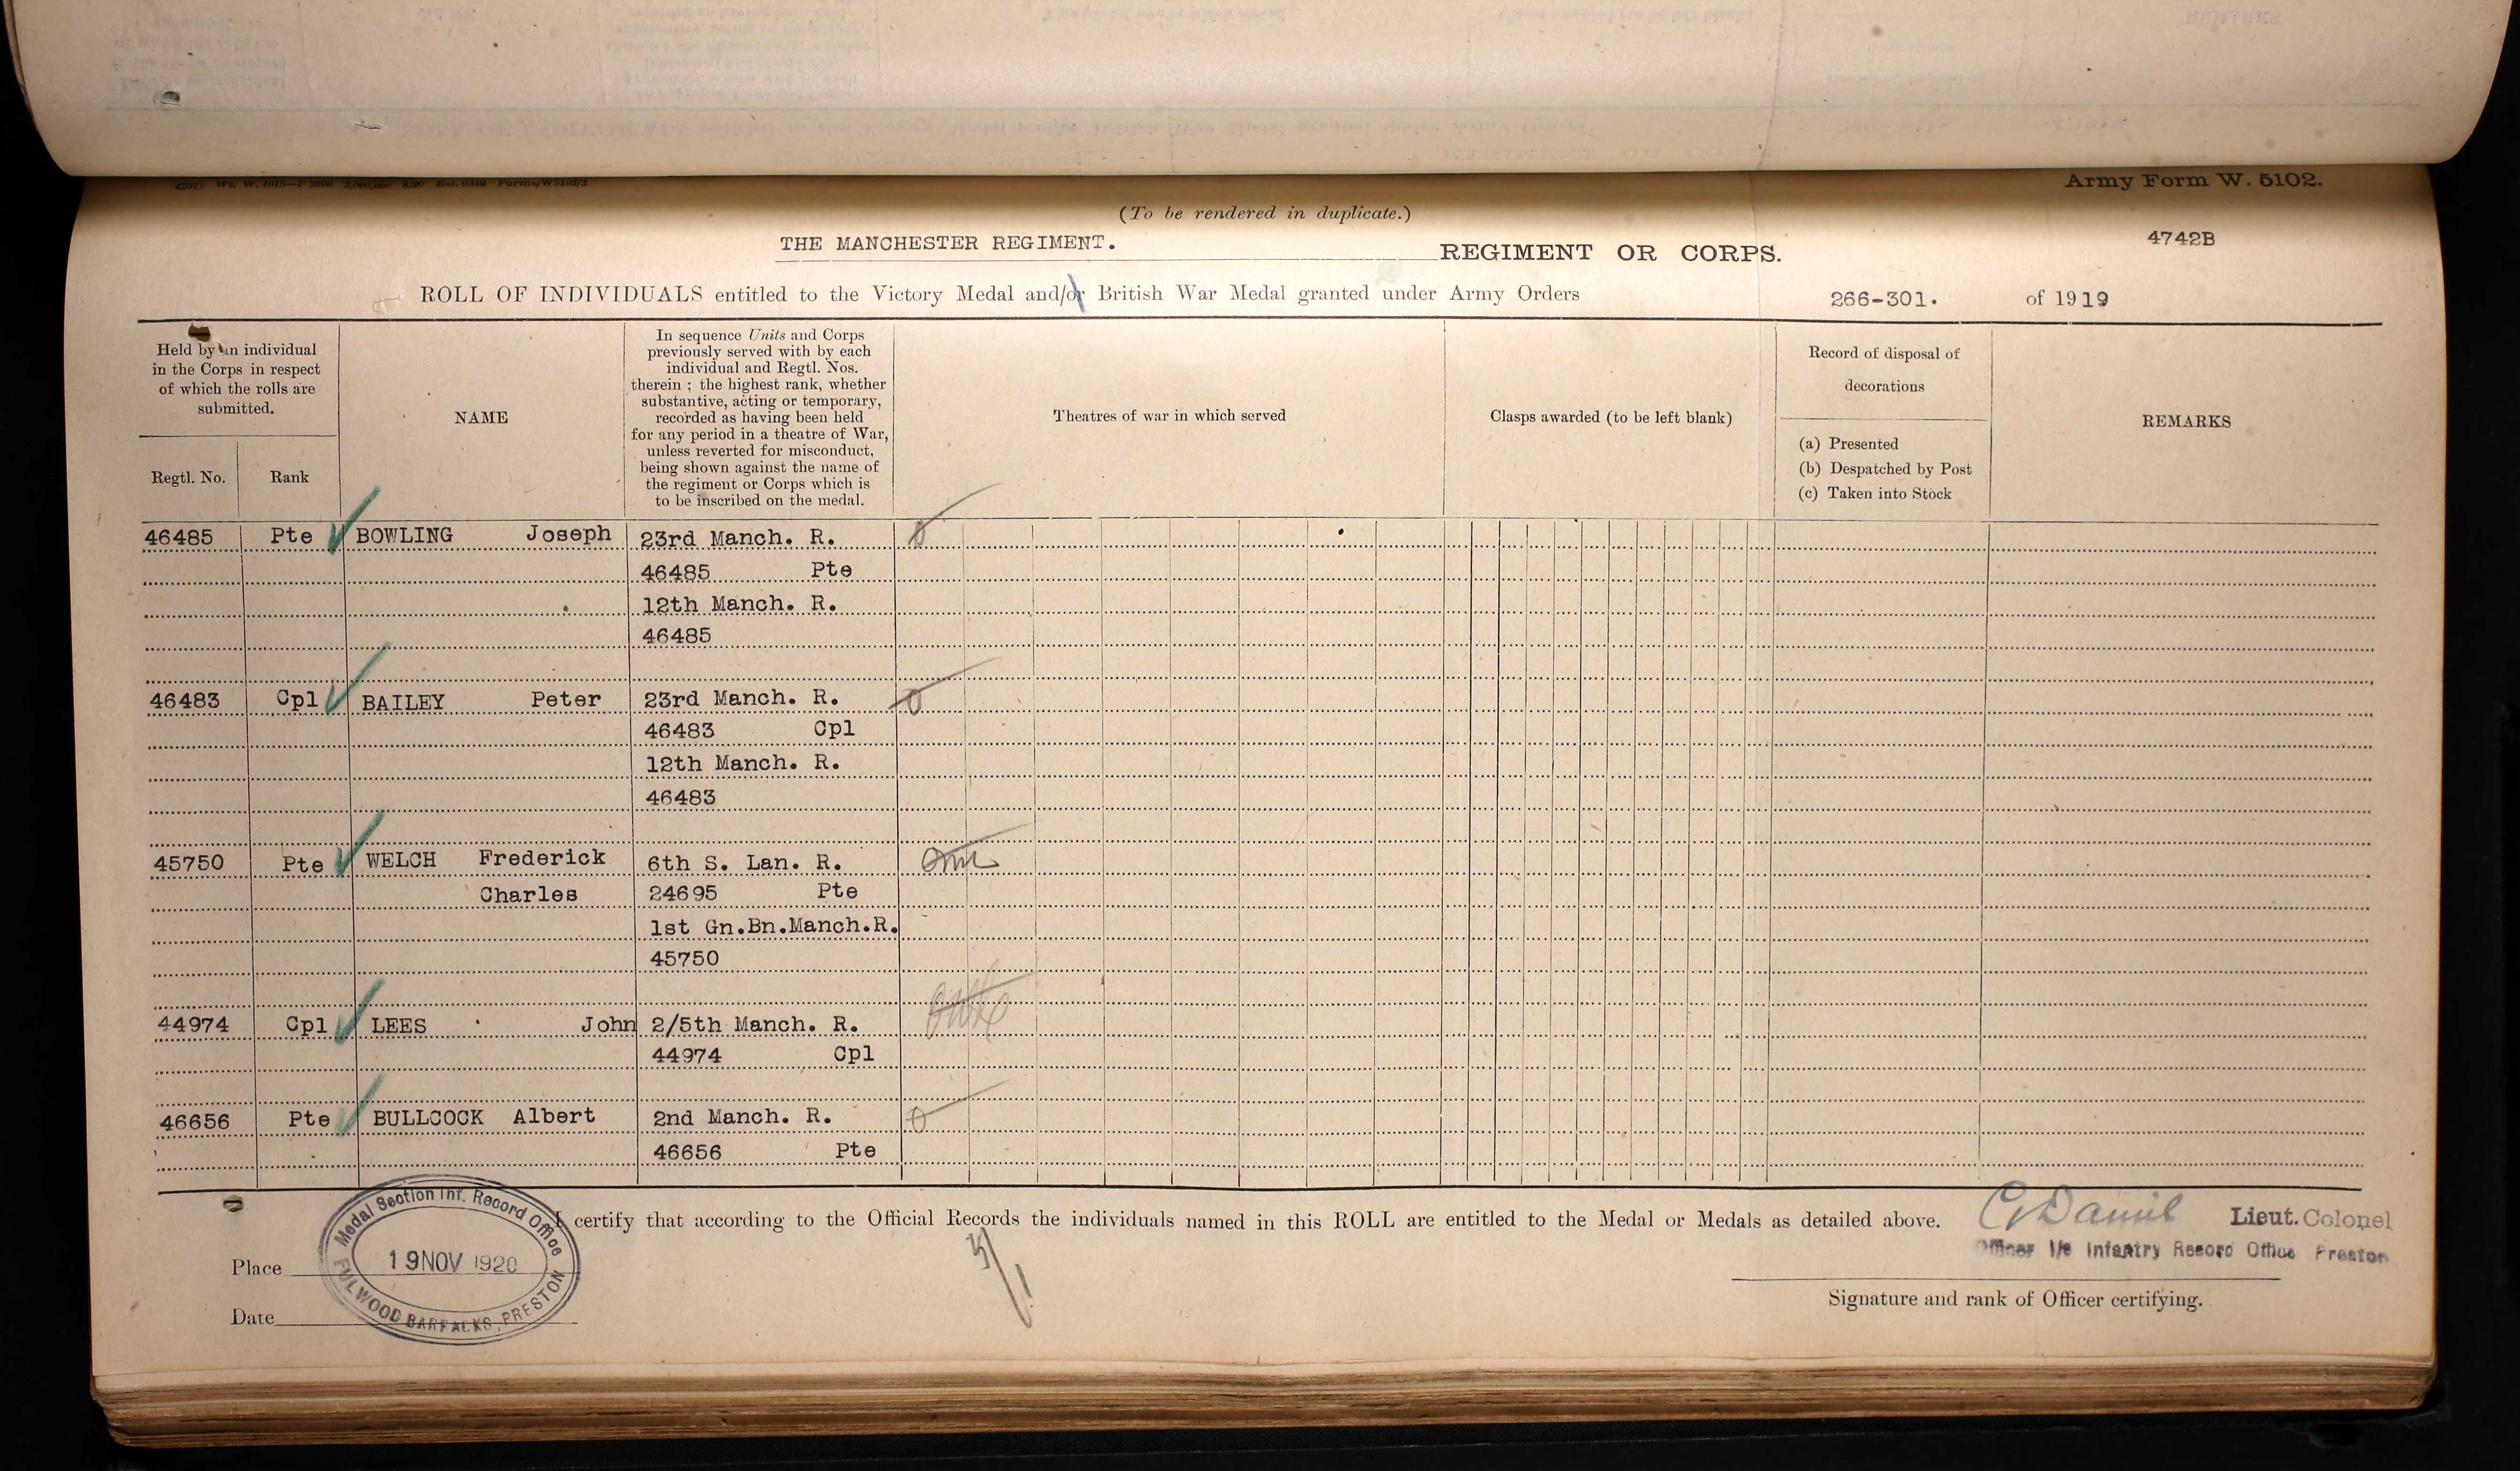 Army Form W. 5102.
(To be rendered in duplicate.)
4742B
THE MANCHESTER REGIMENT. REGIMENT OR CORPS.
ROLL OF INDIVIDUALS entitled to the Victory Medal and/or British War Medal granted under Army Orders 266-301. of 1919
Held by an individual
in the Corps in respect
of which the rolls are
submitted.
Regtl. No.
Rank
NAME
In sequence Units and Corps
previously served with by each
individual and Regtl. Nos.
therein ; the highest rank, whether
substantive, acting or temporary,
recorded as having been held
for any period in a theatre of War,
unless reverted for misconduct,
being shown against the name of
the regiment or Corps which is
to be inscribed on the medal.
Theatres of war in which served
Clasps awarded (to be left blank)
Record of disposal of
decorations
(a) Presented
(b) Despatched by Post
(c) Taken into Stock
REMARKS
46485 Pte BOWLING Joseph 23rd Manch. R.
46485 Pte
12th Manch. R.
46485
46483 Cpl BAILEY Peter 23rd Manch. R.
46483 Cpl
12th Manch. R.
46483
45750 Pte WELCH Frederick 6th S. Lan. R.
Charles 24695 Pte
1st Gn.Bn.Manch.R.
45750
44974 Cpl LEES John 2/5th Manch. R.
44974 Cpl
46656 Pte BULLCOCK Albert 2nd Manch. R.
46656 Pte
I certify that according to the Official Records the individuals named in this ROLL are entitled to the Medal or Medals as detailed above.
Lieut. Colonel
Officer i/c Infantry Record Office Preston
Signature and rank of Officer certifying.
Place
Date
Medal Section Inf. Record Office
19 NOV 1920
FULWOOD BARRACKS, PRESTON